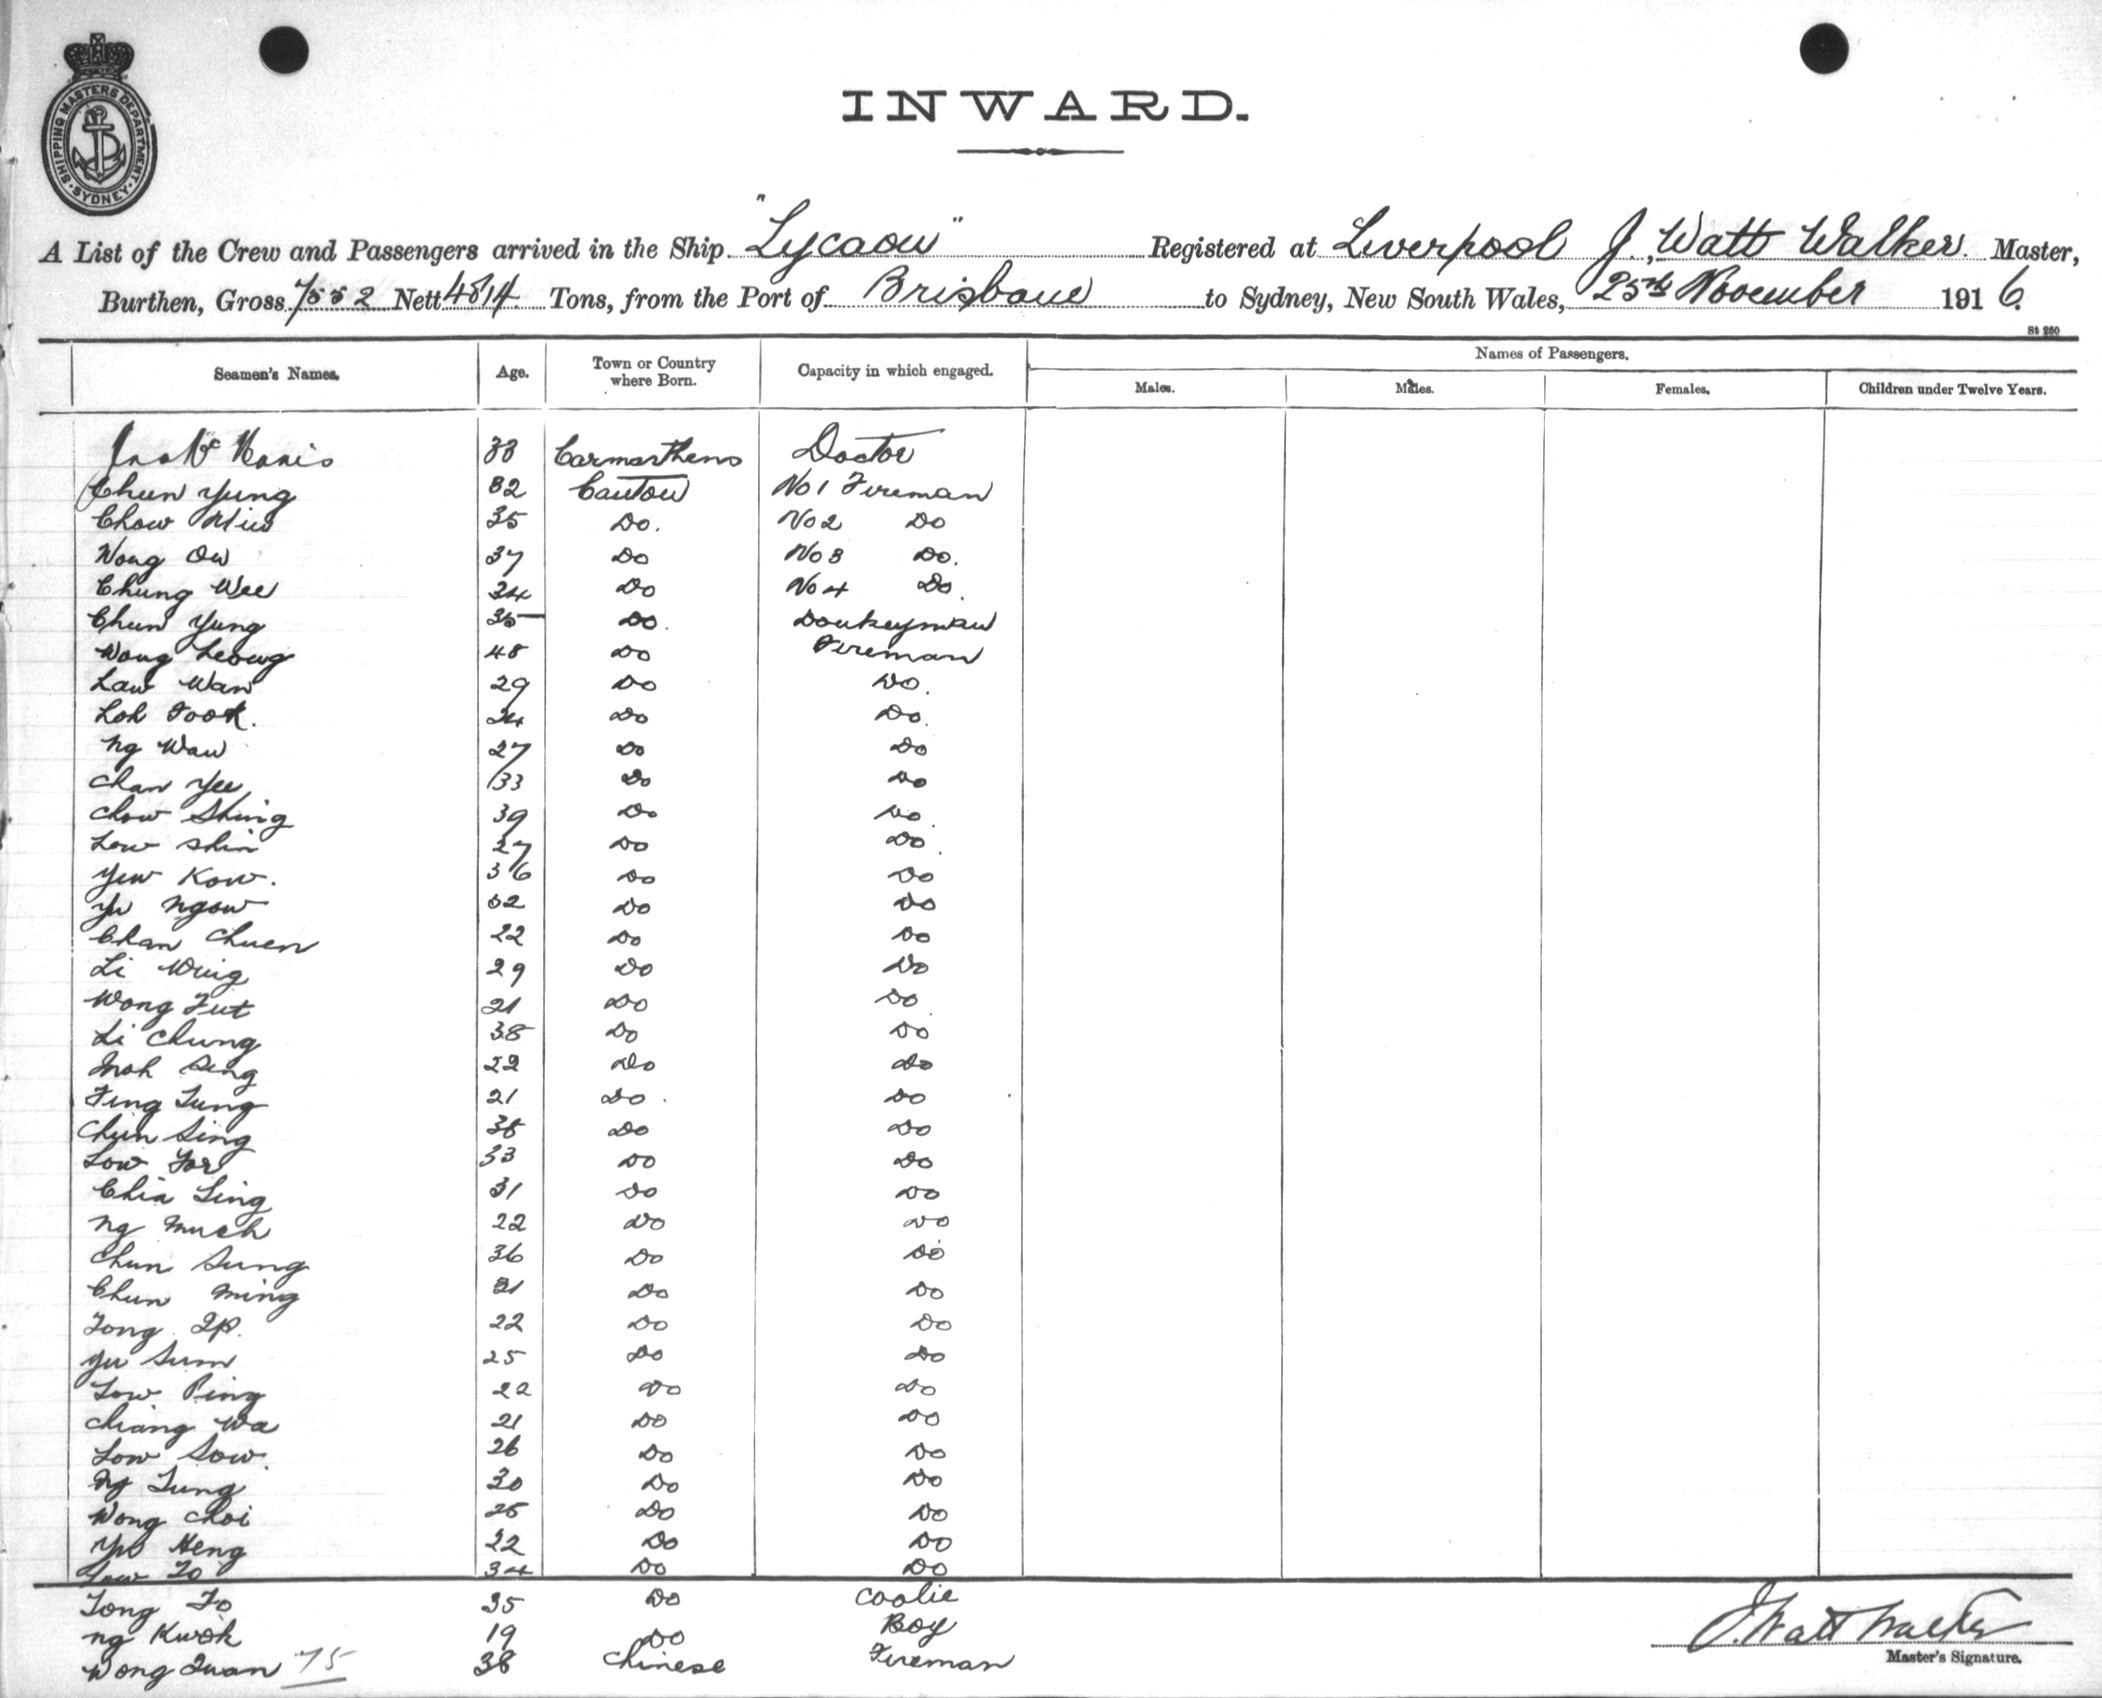 SHIPPING MASTERS DEPARTMENT. SYDNEY
INWARD.
A List of the Crew and Passengers arrived in the Ship "Lycaon" Registered at Liverpool J. Watt Walker. Master,
Burthen, Gross 7552 Nett 4814 Tons, from the Port of Brisbane to Sydney, New South Wales, 25th November 1916.
St 250
Seamen's Names. Age. Town or Country where Born. Capacity in which engaged. Names of Passengers.
Males. Males. Females. Children under Twelve Years.
33 Carmarthens Doctor
Chun Yung 32 Canton No 1 Fireman
Chow 35 Do. No 2 Do
Wong Ow 37 Do No 3 Do.
Chung Wee 34 Do No 4 Do.
Chun Yung 35 Do. Donkeyman
Wong Leong 48 Do Fireman
Law Wan 29 Do Do.
Loh Fook. 24 Do Do.
Ng Wan 27 Do Do
Chan Yee 33 Do Do
Chow Shing 39 Do Do.
Low Shin 27 Do Do.
Yew Kow. 36 Do Do
Yu Ngow 32 Do Do
Chan Chuen 22 Do Do
Li Wing 29 Do Do
Wong Fut 21 Do Do
Li Chung 38 Do Do
Moh Sing 22 Do Do
Fing Tung 21 Do. Do
Chun Sing 38 Do Do
Low For 33 Do Do
Chia Ling 31 Do Do
Ng Much 22 Do Do
Chun Sung 36 Do Do
Chun Ming 31 Do Do
Tong Ip. 22 Do Do
Yu Sum 25 Do Do
Low Ping 22 Do Do
Chiang Wa 21 Do Do
Low Sow. 26 Do Do
Ng Tung 30 Do Do
Wong Choi 25 Do Do
Heng 22 Do Do
Low To 34 Do Do
Tong To 35 Do Coolie
Ng Kwok 19 Do Boy
Wong Tuan 75 38 Chinese Fireman
J. Watt Walker
Master's Signature.